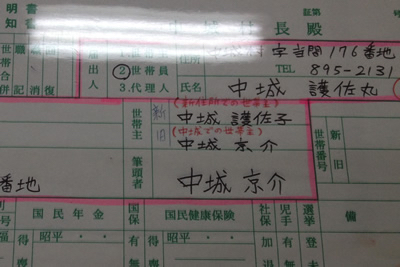 明書
証第
号
中城村長殿
世帯合併
職氏記
変更消
異動復
届出人
2 世帯員
3.代理人
住所
字当間176番地
TEL 895-2131
氏名
中城 護佐丸
(新住所での世帯主)
世帯主
新
中城 護佐子
(中城での世帯主)
旧
中城 京介
筆頭者
中城 京介
世帯番号
新
旧
番地
国民年金
国保
国民健康保険
社保
児手
選挙
備
号
得喪
昭平
有無
得喪
昭平
有無
加
有
登